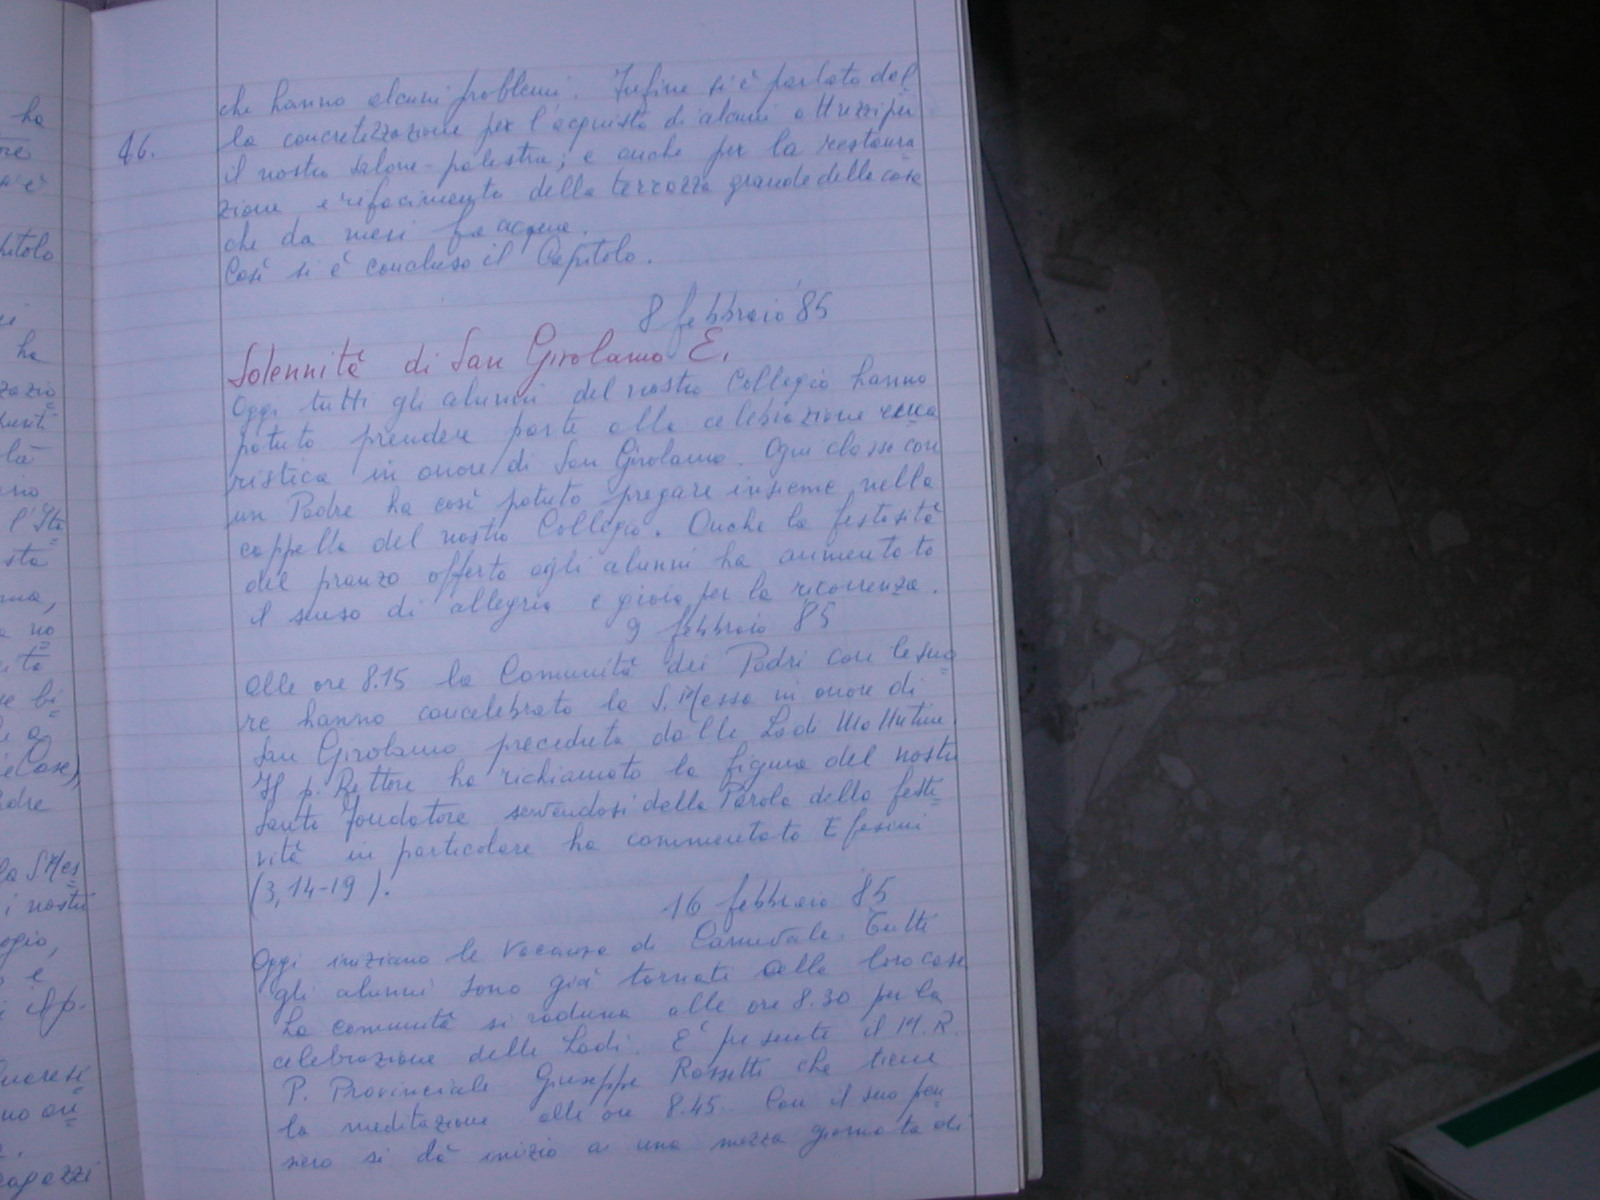 ha
sì è
pitolo
ha
zazio
l'Ist
sta
no
e Case)
adre
la S. Mes
i nostri
egio,
e
il p.
ragazzi
46.
che hanno alcuni problemi. Infine si è parlato del
la concretizzazione per l'acquisto di alcuni attrezzi per
il nostro salone-palestra; e anche per la restaura
zione e rifacimento della terrazza grande della casa
che da mesi fa acqua.
Così si è concluso il Capitolo.
8 febbraio '85
Solennità di San Girolamo E.
Oggi tutti gli alunni del nostro Collegio hanno
potuto prendere parte alla celebrazione euca
ristica in onore di San Girolamo. Ogni classe con
un Padre ha così potuto pregare insieme nella
cappella del nostro Collegio. Anche la festosità
del pranzo offerto agli alunni ha aumentato
il senso di allegria e gioia per la ricorrenza.
9 febbraio 85
Alle ore 8.15 la Comunità dei Padri con le suo
re hanno concelebrato la S. Messa in onore di
San Girolamo preceduta dalle Lodi Mattutine.
Il p. Rettore ha richiamato la figura del nostro
Santo fondatore servendosi della Parola della festi
vità in particolare ha commentato Efesini
(3, 14-19).
16 febbraio '85
Oggi iniziano le vacanze di Carnevale. Tutti
gli alunni sono già tornati alle loro case.
La comunità si raduna alle ore 8.30 per la
celebrazione delle Lodi. E' presente il M. R.
P. Provinciale Giuseppe Rossetti che tiene
la meditazione alle ore 8.45. Con il suo pen
siero si dà inizio a una mezza giornata di